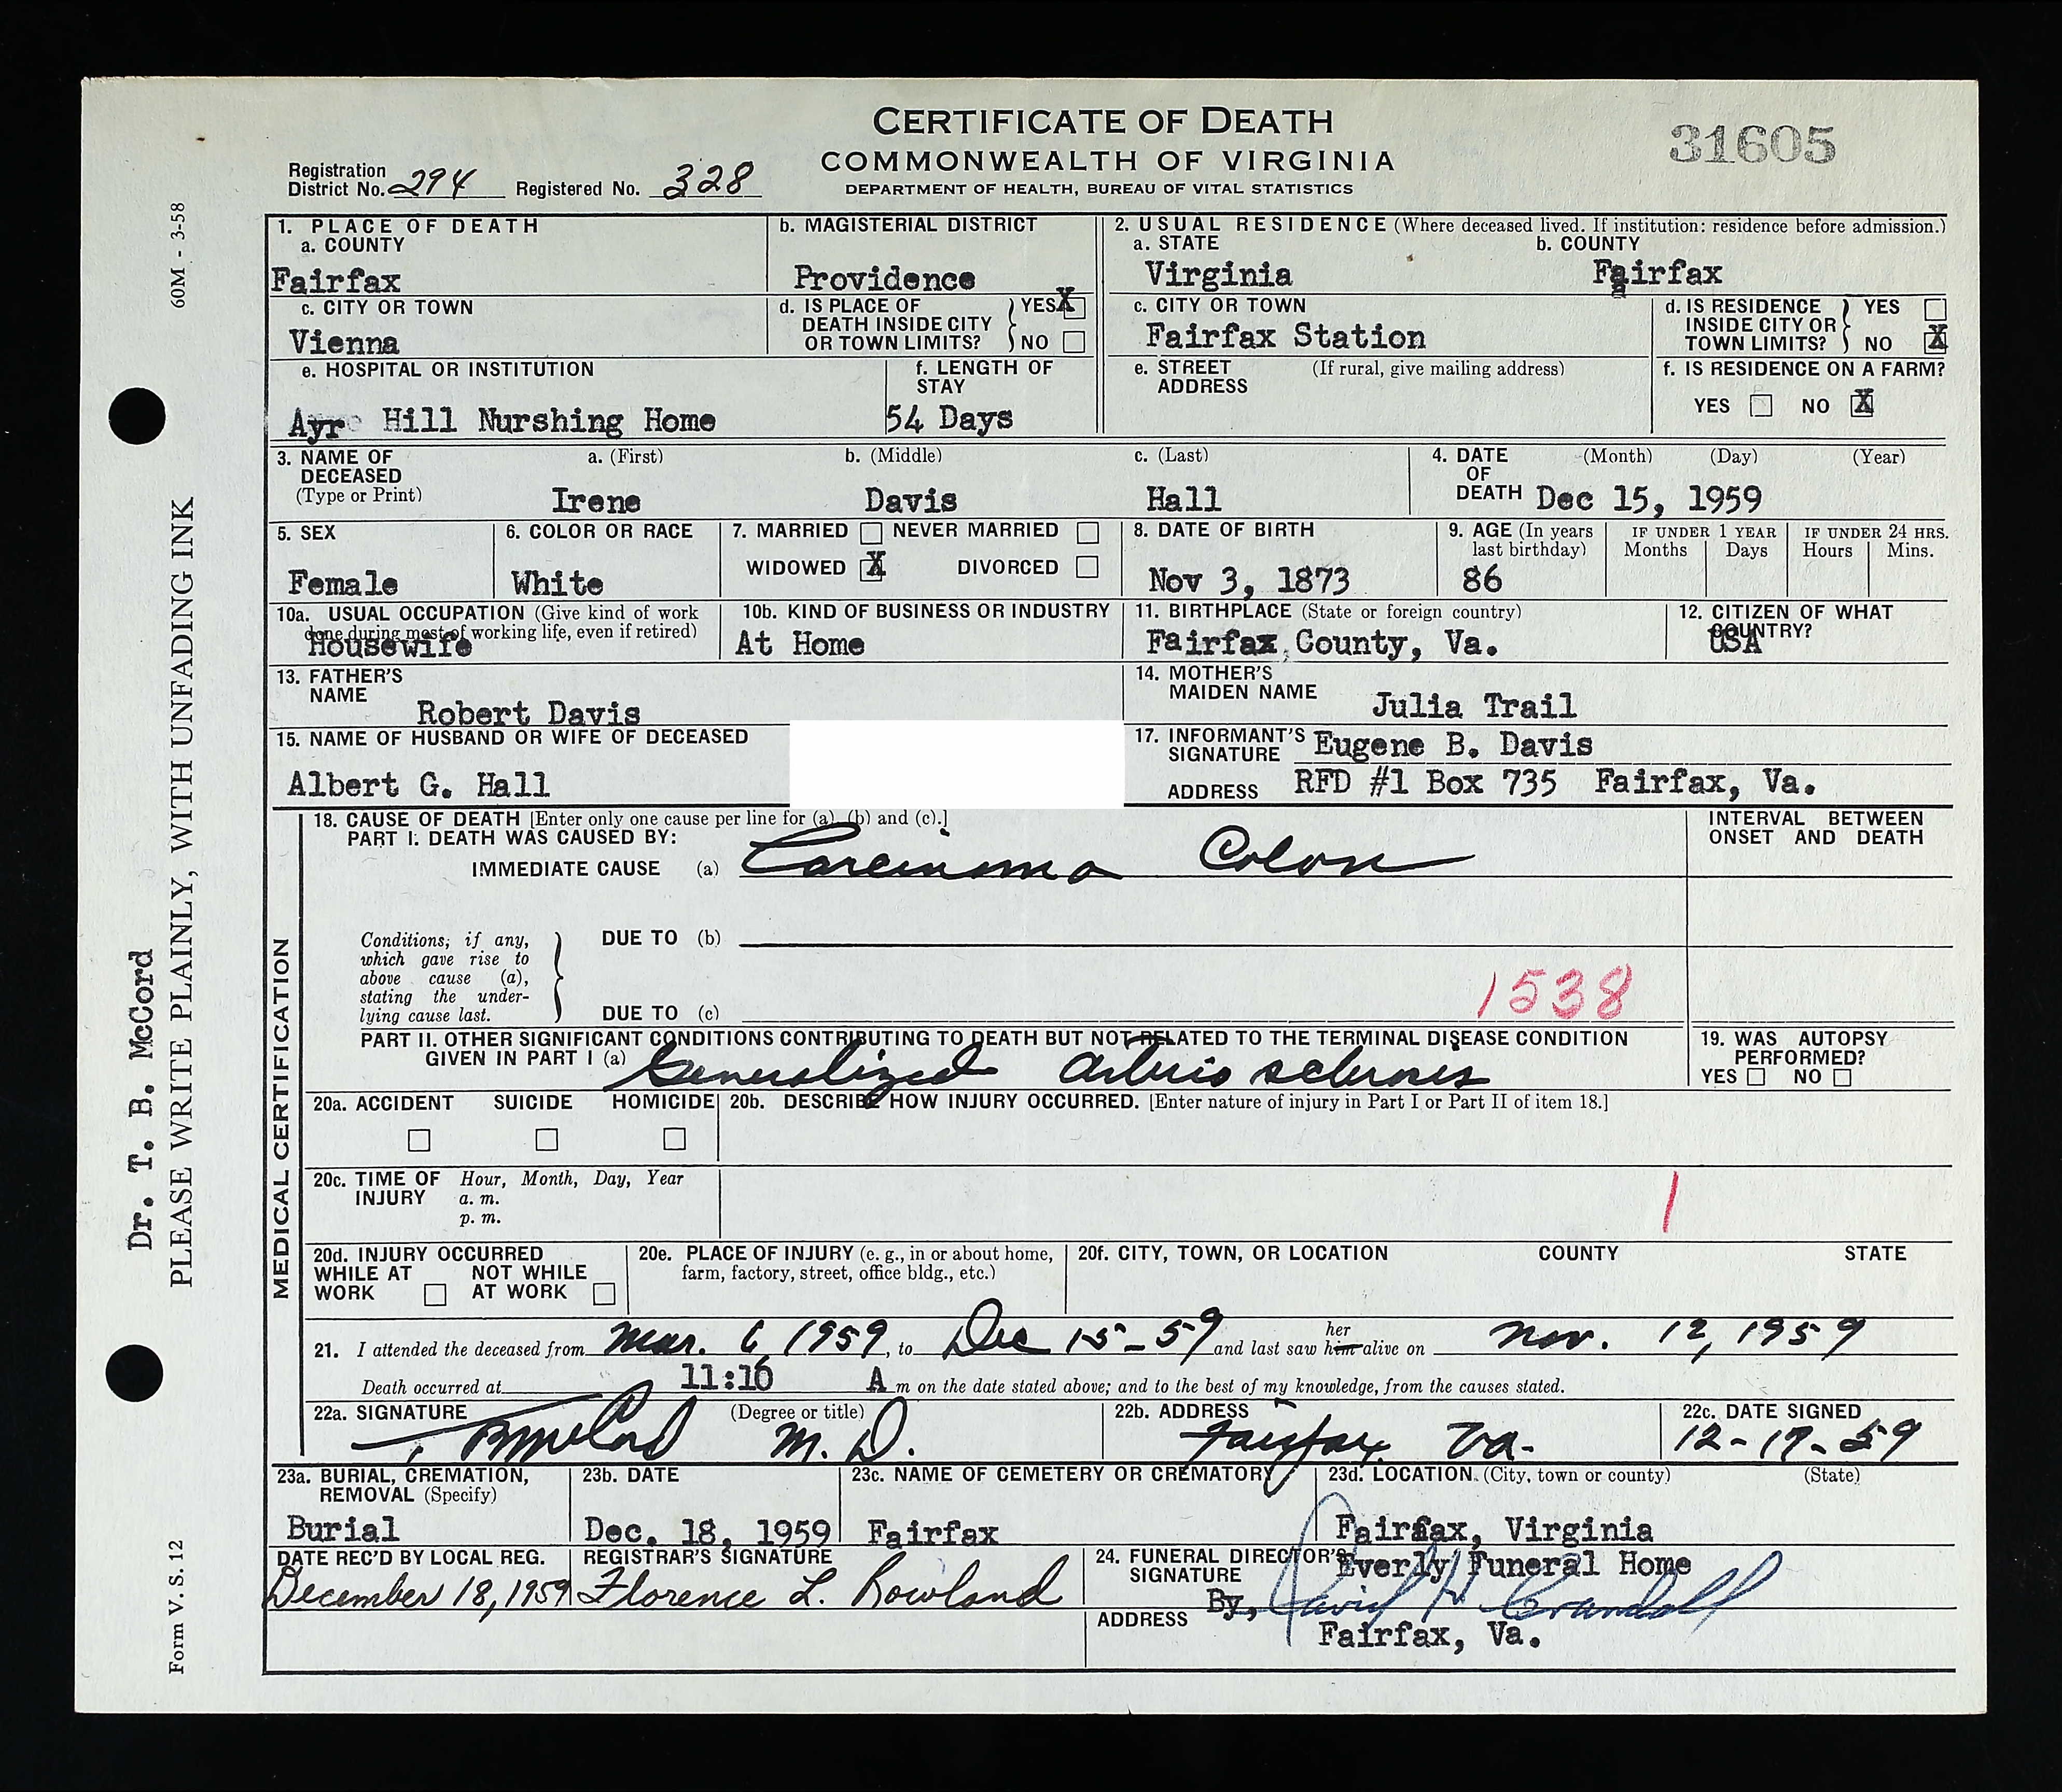 CERTIFICATE OF DEATH
COMMONWEALTH OF VIRGINIA
DEPARTMENT OF HEALTH, BUREAU OF VITAL STATISTICS
31605
Registration District No. 294 Registered No. 328
60M - 3-58
Dr. T. B. McCord
PLEASE WRITE PLAINLY, WITH UNFADING INK
Form V. S. 12
1. PLACE OF DEATH
a. COUNTY
Fairfax
b. MAGISTERIAL DISTRICT
Providence
c. CITY OR TOWN
Vienna
d. IS PLACE OF DEATH INSIDE CITY OR TOWN LIMITS? YES X NO
e. HOSPITAL OR INSTITUTION
Ayre Hill Nurshing Home
f. LENGTH OF STAY
54 Days
2. USUAL RESIDENCE (Where deceased lived. If institution: residence before admission.)
a. STATE
Virginia
b. COUNTY
Fairfax
c. CITY OR TOWN
Fairfax Station
d. IS RESIDENCE INSIDE CITY OR TOWN LIMITS? YES NO X
e. STREET ADDRESS (If rural, give mailing address)
f. IS RESIDENCE ON A FARM?
YES NO X
3. NAME OF DECEASED (Type or Print)
a. (First) b. (Middle) c. (Last)
Irene Davis Hall
4. DATE OF DEATH (Month) (Day) (Year)
Dec 15, 1959
5. SEX
Female
6. COLOR OR RACE
White
7. MARRIED NEVER MARRIED
WIDOWED X DIVORCED
8. DATE OF BIRTH
Nov 3, 1873
9. AGE (In years last birthday)
86
IF UNDER 1 YEAR
Months Days
IF UNDER 24 HRS.
Hours Mins.
10a. USUAL OCCUPATION (Give kind of work done during most of working life, even if retired)
Housewife
10b. KIND OF BUSINESS OR INDUSTRY
At Home
11. BIRTHPLACE (State or foreign country)
Fairfax County, Va.
12. CITIZEN OF WHAT COUNTRY?
USA
13. FATHER'S NAME
Robert Davis
14. MOTHER'S MAIDEN NAME
Julia Trail
15. NAME OF HUSBAND OR WIFE OF DECEASED
Albert G. Hall
17. INFORMANT'S SIGNATURE Eugene B. Davis
ADDRESS RFD #1 Box 735 Fairfax, Va.
MEDICAL CERTIFICATION
18. CAUSE OF DEATH [Enter only one cause per line for (a), (b) and (c).]
PART I. DEATH WAS CAUSED BY:
IMMEDIATE CAUSE (a) Carcinoma Colon
INTERVAL BETWEEN ONSET AND DEATH
Conditions, if any, which gave rise to above cause (a), stating the underlying cause last.
DUE TO (b)
1538
DUE TO (c)
PART II. OTHER SIGNIFICANT CONDITIONS CONTRIBUTING TO DEATH BUT NOT RELATED TO THE TERMINAL DISEASE CONDITION
GIVEN IN PART I (a) Generalized Arterio sclerosis
19. WAS AUTOPSY PERFORMED?
YES NO
20a. ACCIDENT SUICIDE HOMICIDE
20b. DESCRIBE HOW INJURY OCCURRED. [Enter nature of injury in Part I or Part II of item 18.]
20c. TIME OF INJURY Hour, Month, Day, Year
a. m.
p. m.
1
20d. INJURY OCCURRED
WHILE AT WORK NOT WHILE AT WORK
20e. PLACE OF INJURY (e. g., in or about home, farm, factory, street, office bldg., etc.)
20f. CITY, TOWN, OR LOCATION COUNTY STATE
21. I attended the deceased from Mar. 6, 1959, to Dec 15-59 and last saw her him alive on Nov. 12, 1959
Death occurred at 11:10 A m on the date stated above; and to the best of my knowledge, from the causes stated.
22a. SIGNATURE (Degree or title)
T B McCord M. D.
22b. ADDRESS
Fairfax Va.
22c. DATE SIGNED
12-17-59
23a. BURIAL, CREMATION, REMOVAL (Specify)
Burial
23b. DATE
Dec. 18, 1959
23c. NAME OF CEMETERY OR CREMATORY
Fairfax
23d. LOCATION (City, town or county) (State)
Fairfax, Virginia
DATE REC'D BY LOCAL REG.
December 18, 1959
REGISTRAR'S SIGNATURE
Florence L. Rowland
24. FUNERAL DIRECTOR'S SIGNATURE
Everly Funeral Home
By, David H Crandall
ADDRESS
Fairfax, Va.